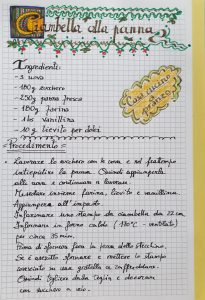 Ciambella alla panna
Ingredienti:
- 3 uova
- 180g zucchero
- 250g panna fresca
- 180g farina
- 1 bs vanillina
- 10 g lievito per dolci
Procedimento =
• Lavorare lo zucchero con le uova e nel frattempo
intiepidire la panna. Quindi aggiungerla
alle uova e continuare a lavorare.
Mescolare insieme farina, lievito e vanillina.
Aggiungere all'impasto.
Imburrare uno stampo da ciambella da 22 cm.
Infornare in forno caldo (170°C - ventilato)
per circa 35 min.
Prima di sfornare fare la prova dello stecchino.
Se è asciutto sfornare e mettere lo stampo
rovesciato su una gratella a raffreddare.
Quindi togliere dalla teglia e decorare
con zucchero a velo.